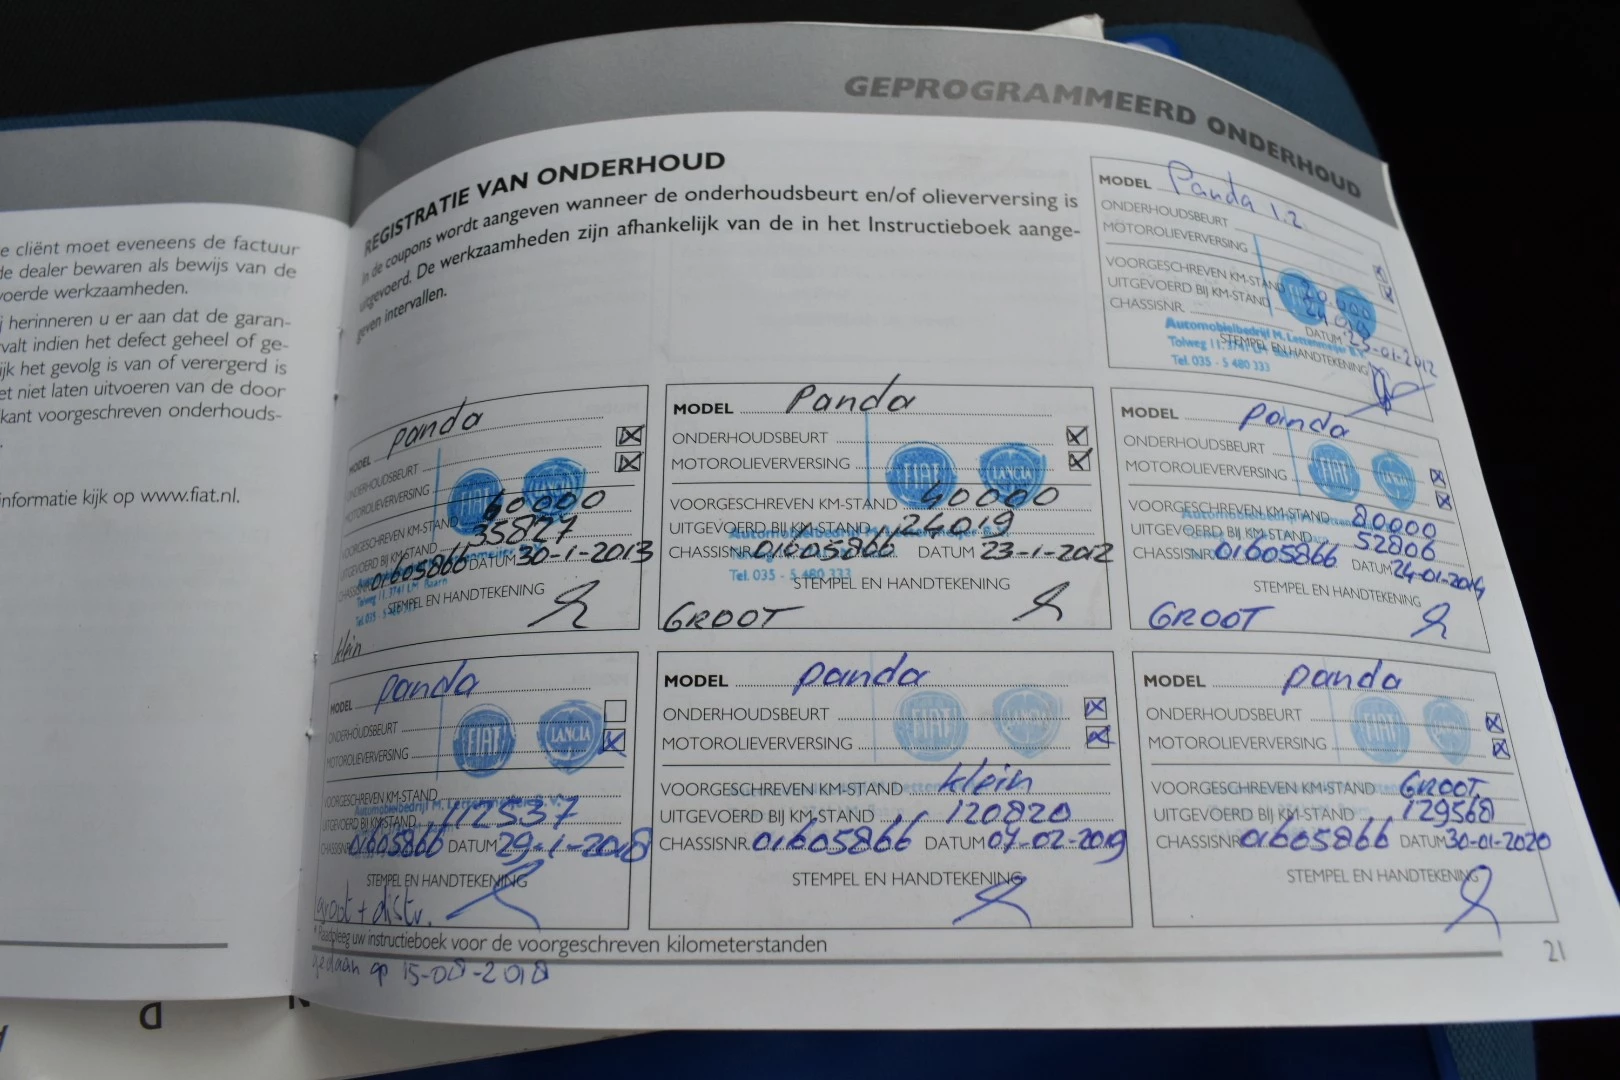 GEPROGRAMMEERD ONDERHOUD
e cliënt moet eveneens de factuur
de dealer bewaren als bewijs van de
voerde werkzaamheden.
j herinneren u er aan dat de garan-
valt indien het defect geheel of ge-
ijk het gevolg is van of verergerd is
et niet laten uitvoeren van de door
kant voorgeschreven onderhouds-
.
informatie kijk op www.fiat.nl.
REGISTRATIE VAN ONDERHOUD
In de coupons wordt aangeven wanneer de onderhoudsbeurt en/of olieverversing is
uitgevoerd. De werkzaamheden zijn afhankelijk van de in het Instructieboek aange-
geven intervallen.
MODEL Panda 1.2
ONDERHOUDSBEURT
MOTOROLIEVERVERSING
VOORGESCHREVEN KM-STAND 20.000
UITGEVOERD BIJ KM-STAND
CHASSISNR. DATUM 23-01-2012
STEMPEL EN HANDTEKENING
Automobielbedrijf M. Lettenmeijer B.V.
Tolweg 11, 3741 LM
Tel. 035 - 5 480 333
MODEL panda
ONDERHOUDSBEURT
MOTOROLIEVERVERSING
FIAT LANCIA
VOORGESCHREVEN KM-STAND 60000
UITGEVOERD BIJ KM-STAND 35827
CHASSISNR. 01605866 DATUM 30-1-2013
STEMPEL EN HANDTEKENING
klein
MODEL Panda
ONDERHOUDSBEURT
MOTOROLIEVERVERSING
FIAT LANCIA
VOORGESCHREVEN KM-STAND 40000
UITGEVOERD BIJ KM-STAND 24019
CHASSISNR. 01605866 DATUM 23-1-2012
Tel. 035 - 5 480 333
STEMPEL EN HANDTEKENING
GROOT
MODEL panda
ONDERHOUDSBEURT
MOTOROLIEVERVERSING
FIAT LANCIA
VOORGESCHREVEN KM-STAND 80000
UITGEVOERD BIJ KM-STAND 52806
CHASSISNR. 01605866 DATUM 24-01-2014
STEMPEL EN HANDTEKENING
GROOT
MODEL panda
ONDERHOUDSBEURT
MOTOROLIEVERVERSING
FIAT LANCIA
VOORGESCHREVEN KM-STAND
UITGEVOERD BIJ KM-STAND 112537
CHASSISNR. 01605866 DATUM 29-1-2018
STEMPEL EN HANDTEKENING
groot + distr.
gedaan op 15-08-2018
MODEL panda
ONDERHOUDSBEURT
MOTOROLIEVERVERSING
FIAT
VOORGESCHREVEN KM-STAND klein
UITGEVOERD BIJ KM-STAND 120820
CHASSISNR. 01605866 DATUM 04-02-2019
STEMPEL EN HANDTEKENING
MODEL panda
ONDERHOUDSBEURT
MOTOROLIEVERVERSING
FIAT
VOORGESCHREVEN KM-STAND GROOT
UITGEVOERD BIJ KM-STAND 129568
CHASSISNR. 01605866 DATUM 30-01-2020
STEMPEL EN HANDTEKENING
* Raadpleeg uw instructieboek voor de voorgeschreven kilometerstanden
21